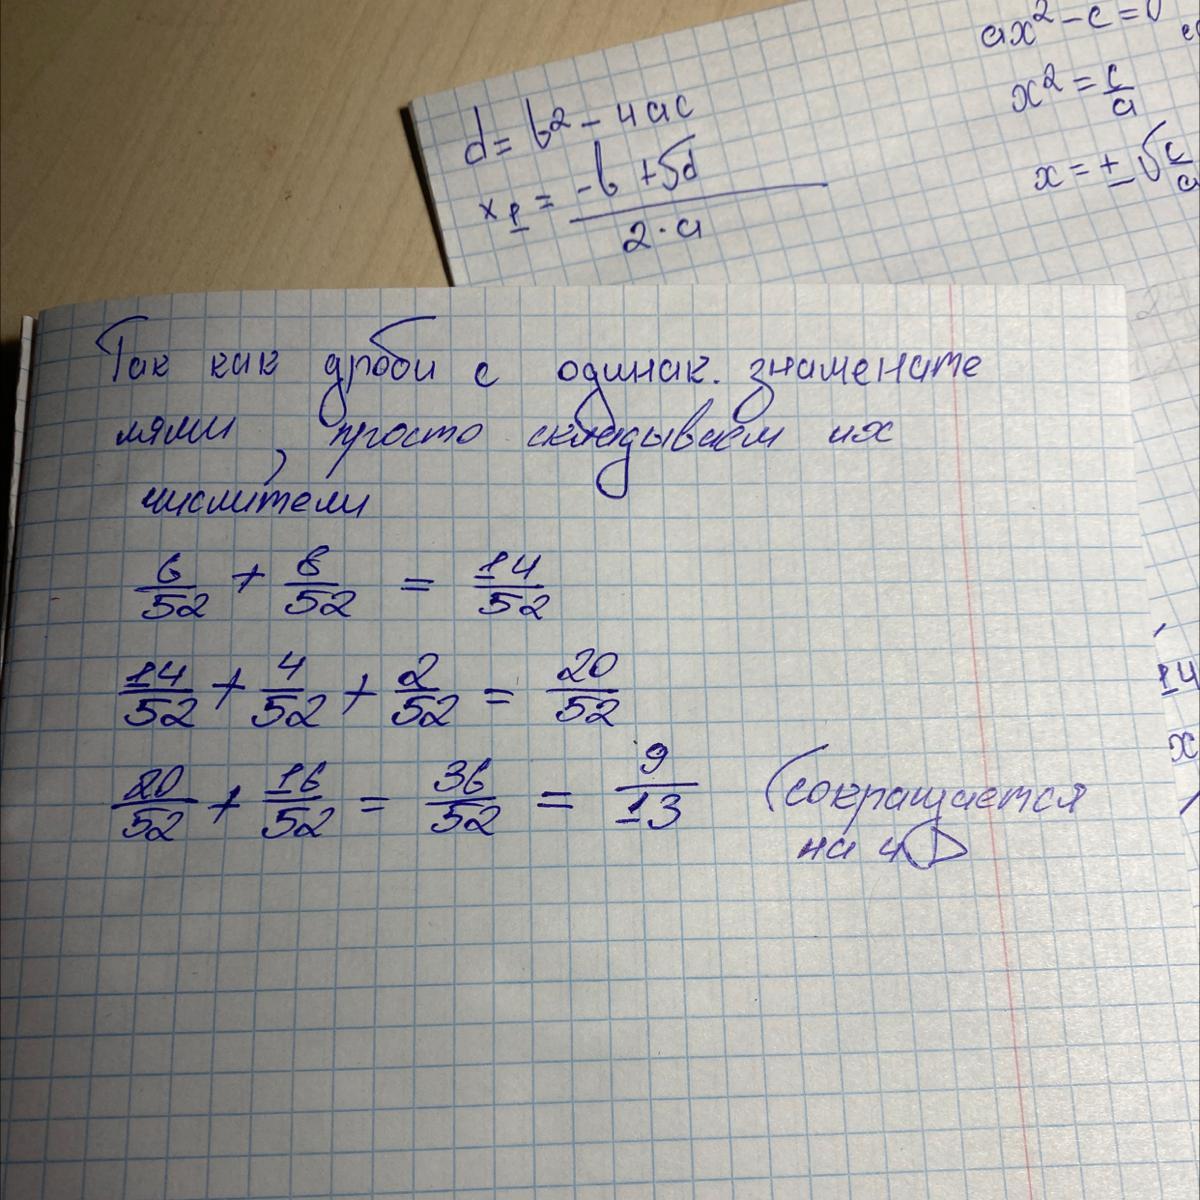 d = b² - 4ac
x₁ = (-b + √d) / (2 · a)
ax² - c = 0
x² = c/a
x = ± √(c/a)
Так как дроби с одинак. знаменате
лями, просто складываем их
числители
6/52 + 8/52 = 14/52
14/52 + 4/52 + 2/52 = 20/52
20/52 + 16/52 = 36/52 = 9/13 (сокращается
на 4)
14
x